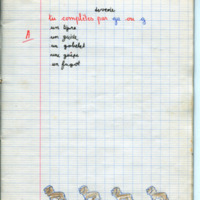 devoir
tu complètes par gu ou g
A
un tigre
un guide
un gobelet
une guêpe
un fagot